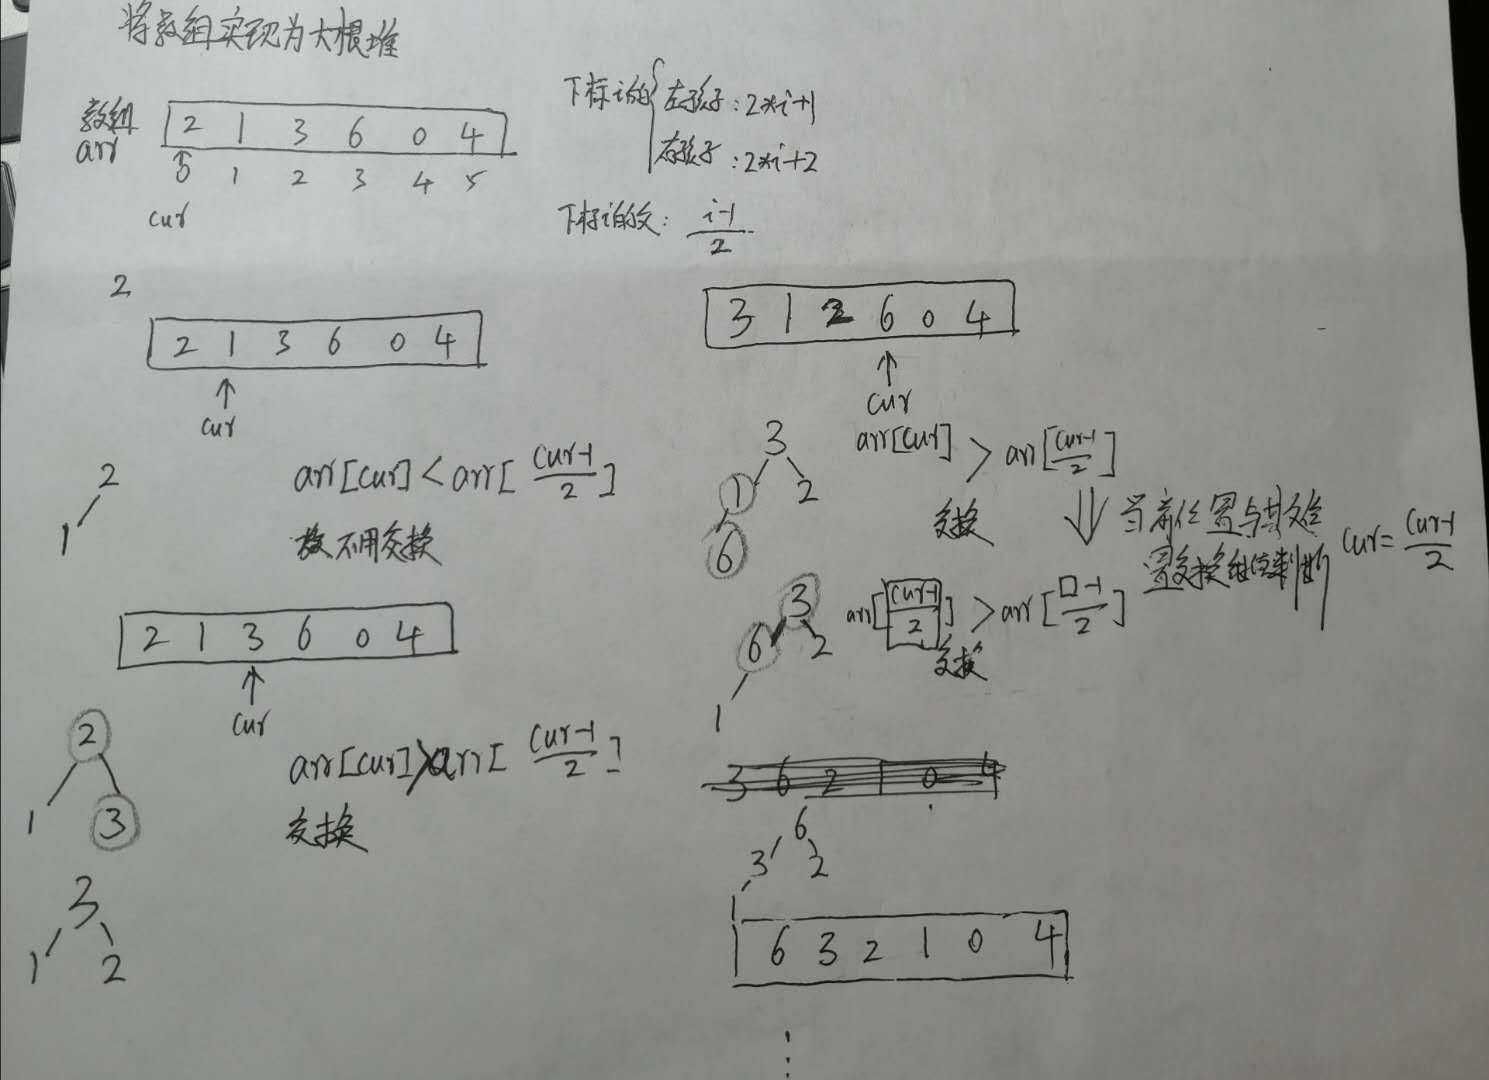 将数组实现为大根堆
数组 2 1 3 6 0 4
arr
0 1 2 3 4 5
cur
下标i的 左孩子：2*i+1
右孩子：2*i+2
下标i的父： i-1
2
2
2 1 3 6 0 4
cur
2
1
arr[cur] < arr[ cur-1
2 ]
故不用交换
2 1 3 6 0 4
cur
2
1 3
arr[cur] > arr[ cur-1
2 ]
交换
3
1 2
3 1 2 6 0 4
cur
3
1 2
6
arr[cur] > arr[ cur-1
2 ]
交换
当前位置与其父位
置交换继续判断 cur= cur-1
2
3
6 2
1
arr[ cur-1
2 ] > arr[ □-1
2 ]
交换
3 6 2 1 0 4
6
3 2
1
6 3 2 1 0 4